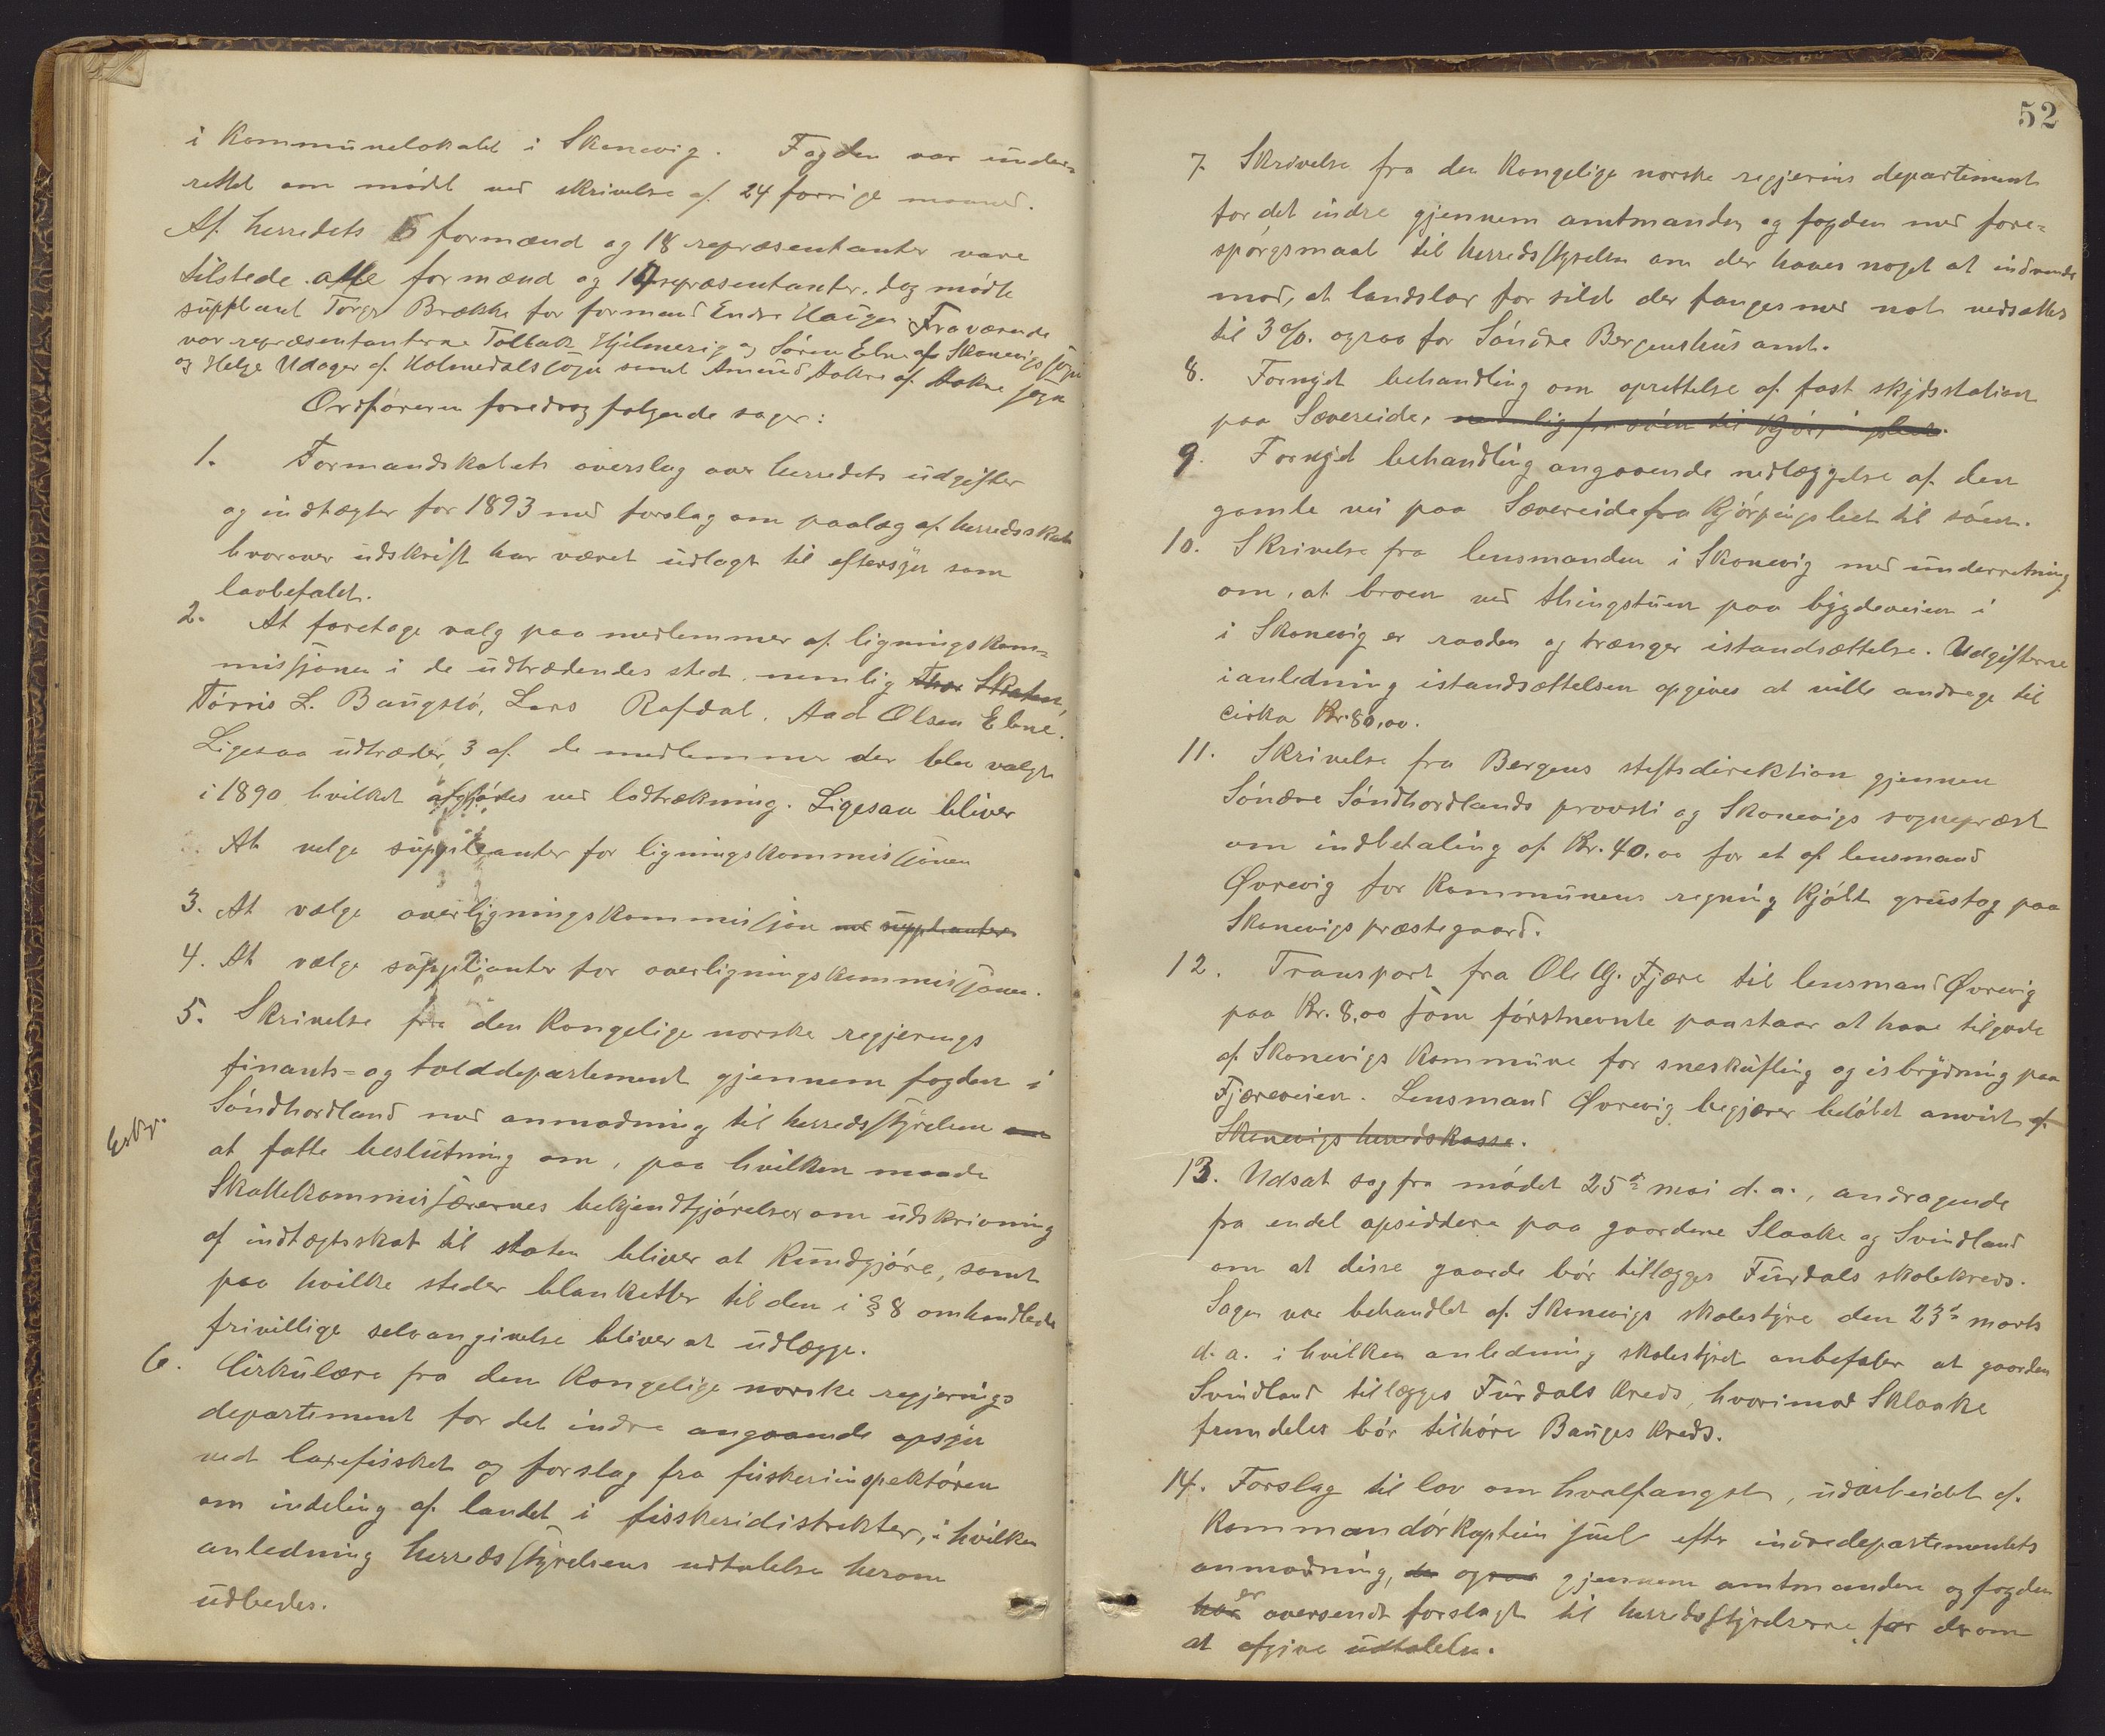 i Kommunelokalet i Skonevig. Fogden var under-
rettet om mödet ved skrivelse af 24 forrige maaned.
Af herredets 6 formænd og 18 repræsentanter vare
tilstede alle formænd og 14 repræsentanter, dog mödte
supleant Torger Brække for formand Endre Haugen. Fraværende
var repræsentanterne Tolleik Hjelmevig og Sören Ebne af Skonevigs sogn
og Helge Udager af Holmedals sogn samt Amund Aakre af Aakre sogn
Ordföreren foredrog fölgende sager:
1. Formandskabets overslag over herredets udgifter
og indtægter for 1893 med forslag om paalæg af herredsskat
hvorover udskrift har været udlagt til eftersyn som
lovbefalet.
2. At foretage valg paa medlemmer af ligningskom-
missjonen i de udtrædendes sted, nemlig
Törris L. Baugstö, Lars Rafdal, Aad Olsen Ebne.
Ligesaa udtræder 3 af de medlemmer der blev valgt
i 1890 hvilket afgjöres ved lodtrækning. Ligesaa bliver
At velge suppleanter for ligningskommissjonen
3. At vælge overligningskommissjon med suppleanter
4. At vælge suppleanter for overligningskommissjonen.
5. Skrivelse fra den Kongelige norske regjerings
finants- og tolddepartement gjennem fogden i
Söndhordland med anmodning til herredsstyrelsen om
at fatte beslutning om, paa hvilken maade
Skattekommissærernes bekjendtgjörelser om udskrivning
af indtægtsskat til staten bliver at Kundgjöre, samt
paa hvilke steder blanketter til den i § 8 omhandlede
frivillige selvangivelse bliver at udlægge.
6. Cirkulære fra den Kongelige norske regjerings
departement for det indre angaaende opsyn
ved laxefisket og forslag fra fiskeriinspektören
om indeling af landet i fisskeridistrikter, i hvilken
anledning herredsstyrelsens udtalelse herom
udbedes.
52
7 Skrivelse fra den Kongelige norske regjerins departement
for det indre gjennem amtmanden og fogden med fore-
spörgsmaal til herredsstyrelsen om der haves noget at indvende
mod, at landslov for sild der fanges med not nedsættes
til 3 %. ogsaa for Söndre Bergenshus amt.
8. Fornyet behandling om oprettelse af fast skydsstation
paa Sævereide,
9. Fornyet behandling angaaende nedlæggelse af den
gamle vei paa Sævereide fra Kjörpingsleet til söen.
10. Skrivelse fra lensmanden i Skonevig med underretning
om, at broen ved thingstuen paa bygdeveien i
i Skonevig er raaden og trænger istandsættelse. Udgifterne
i anledning istandsættelsen opgives at ville andrage til
cirka Kr. 80,00.
11. Skrivelse fra Bergens stiftsdirektion gjennem
Söndre Söndhordlands provsti og Skonevigs sognepræst
om indbetaling af Kr. 40.00 for et af lensmand
Øvrevig for Kommunens regning Kjöbt grustag paa
Skonevigs præstegaard.
12. Transport fra Ole G. Fjære til lensmand Øvrevig
paa Kr. 8,00 som förstnevnte paastaar at have tilgode
af Skonevigs Kommune for sneskufling og isbrydning paa
Fjæreveien. Lensmand Øvrevig begjærer belöbet anvist af
Skonevigs herredskasse.
13. Udsat sag fra mödet 25de mai d. a., andragende
fra endel opsiddere paa gaardene Slaake og Svindland
om at disse gaarde bör tillægges Furdals skolekreds.
Sagen var behandlet af Skonevigs skolestyre den 23de marts
d. a. i hvilken anledning skolestyret anbefaler at gaarden
Svindland tillægges Furdals Kreds, hvorimod Sklaake
fremdeles bör tilhöre Bauges Kreds.
14. Forslag til lov om hvalfangst, udarbeidet af
Kommandörkaptein Juel efter indredepartementets
anmodning, gjennem amtmanden og fogden
har er oversendt forslagt til herredsstyrelserne for derom
at afgive udtalelse.